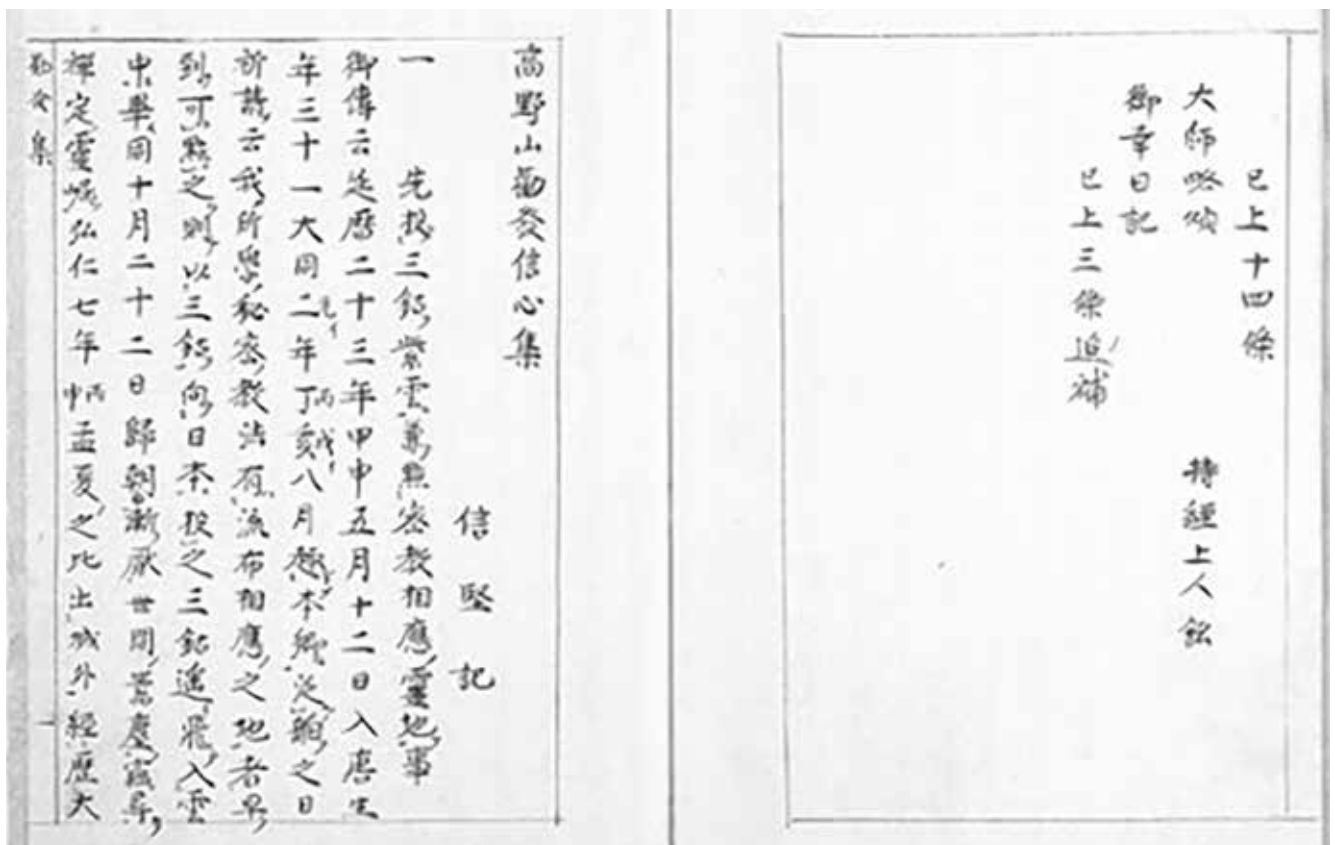 已上十四條
大師略頌 持經上人銘
御幸日記
已上三條追補
高野山勸發信心集
信堅記
一 先投三鈷紫雲兼點密教相應靈地事
御傳云延曆二十三年甲申五月十二日入唐生
年三十一大同二年丁亥八月趣本鄕泛舶之日
祈請云我所學秘密教法有流布相應之地者早
到可點之則以三鈷向日本投之三鈷遙飛入雲
中畢同十月二十二日歸朝漸厭世間囂塵尋
禪定靈崛弘仁七年丙申孟夏之比出城外經歷大
勸發集 一